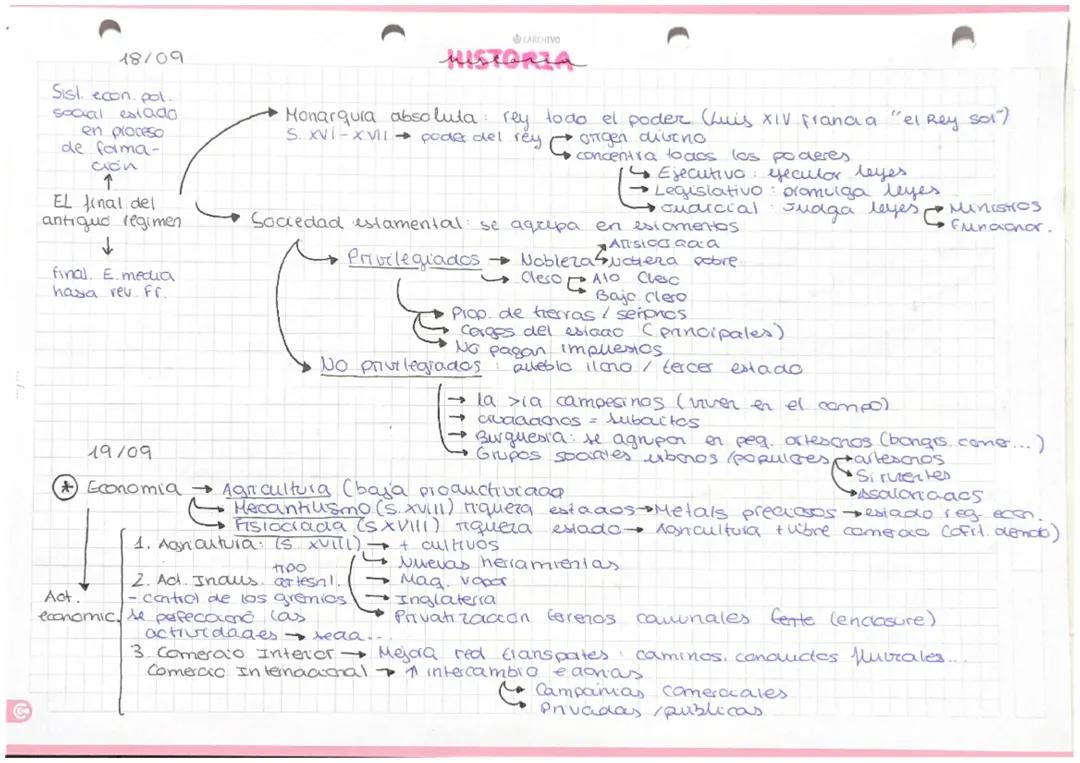 CARCHIVO
18/09
HISTORIA
historia
Sist. econ. pol.
social estado
en proceso
de forma-
ción
↑
El final del
antiguo régimen
↓
final. E. media
hasta rev. Fr.
→ Monarquía absoluta: rey todo el poder (Luis XIV Francia "el Rey sol")
S. XVI-XVII → poder del rey → origen divino
→ concentra todos los poderes
→ Ejecutivo: ejecutar leyes
→ Legislativo: promulga leyes
→ Judicial: Juzga leyes → Ministros
→ Funcionar.
→ Sociedad estamental: se agrupa en estamentos
→ Privilegiados → Nobleza → Aristocracia
→ Nobleza pobre
→ Clero → Alto Clero
Bajo clero
→ Prop. de tierras / señoríos
→ Cargos del estado (principales)
→ No pagan impuestos
→ No privilegiados: pueblo llano / tercer estado
→ la >ía campesinos (viven en el campo)
→ ciudadanos = subditos
→ Burguesía: se agrupan en peq. artesanos (banqrs. comer...)
→ Grupos sociales urbanos / populares → artesanos
→ Sirvientes
→ Asalariados
19/09
* Economía → Agricultura (baja productividad
→ Mecantilismo (S. XVIII) riqueza estados → Metals preciosos → estado reg. econ.
→ Fisiocracia (S XVIII) riqueza estado → Agricultura + libre comercio (ofrt. demda)
Act.
economic.
1. Agricultura: (S. XVIII) → + cultivos
→ Nuevas herramientas
→ Maq. vapor
→ Inglaterra
→ Privatización terrenos comunales (enclosure)
2. Act. Indus. tipo artesnl.
- control de los gremios
se pefeccionó las
actividades → seda...
3. Comercio Interior → Mejora red transpotes: caminos, conductos fluviales...
Comercio Internacional → ↑ intercambio
→ Compañias comerciales
→ Privadas / públicas